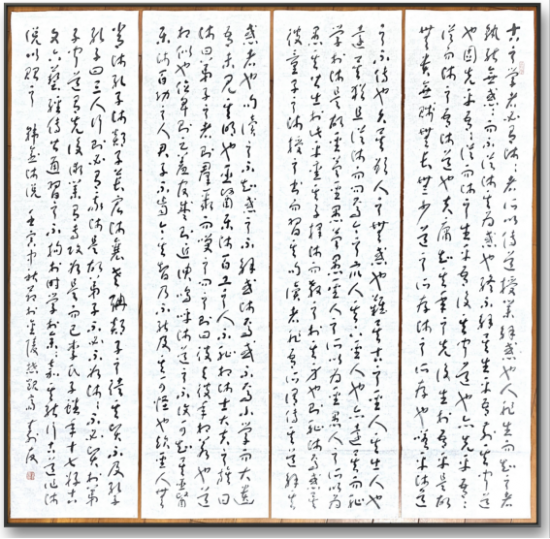 古之學者必有師師者所以傳道授業解惑也人非生而知之者
孰能無惑惑而不從師其為惑也終不解矣生乎吾前其聞道
也固先乎吾吾從而師之生乎吾後其聞道也亦先乎吾吾
從而師之吾師道也夫庸知其年之先後生於吾乎是故
無貴無賤無長無少道之所存師之所存也嗟乎師道
之不傳也久矣欲人之無惑也難矣古之聖人其出人也
遠矣猶且從師而問焉今之眾人其下聖人也亦遠矣而恥
學於師是故聖益聖愚益愚聖人之所以為聖愚人之所以為
愚其皆出於此乎愛其子擇師而教之於其身也則恥師焉惑矣
彼童子之師授之書而習其句讀者非吾所謂傳其道解其
惑者也句讀之不知惑之不解或師焉或不焉小學而大遺
吾未見其明也巫醫樂師百工之人不恥相師士大夫之族曰
師曰弟子云者則群聚而笑之問之則曰彼與彼年相若也道
相似也位卑則足羞官盛則近諛嗚呼師道之不復可知矣巫醫
樂師百工之人君子不齒今其智乃反不能及其可怪也歟聖人無
常師孔子師郯子萇弘師襄老聃郯子之徒其賢不及孔子
孔子曰三人行則必有我師是故弟子不必不如師師不必賢於弟
子聞道有先後術業有專攻如是而已李氏子蟠年十七好古
文六藝經傳皆通習之不拘於時學於余余嘉其能行古道作師
說以貽之 韓愈師說 壬寅中秋節於金陵